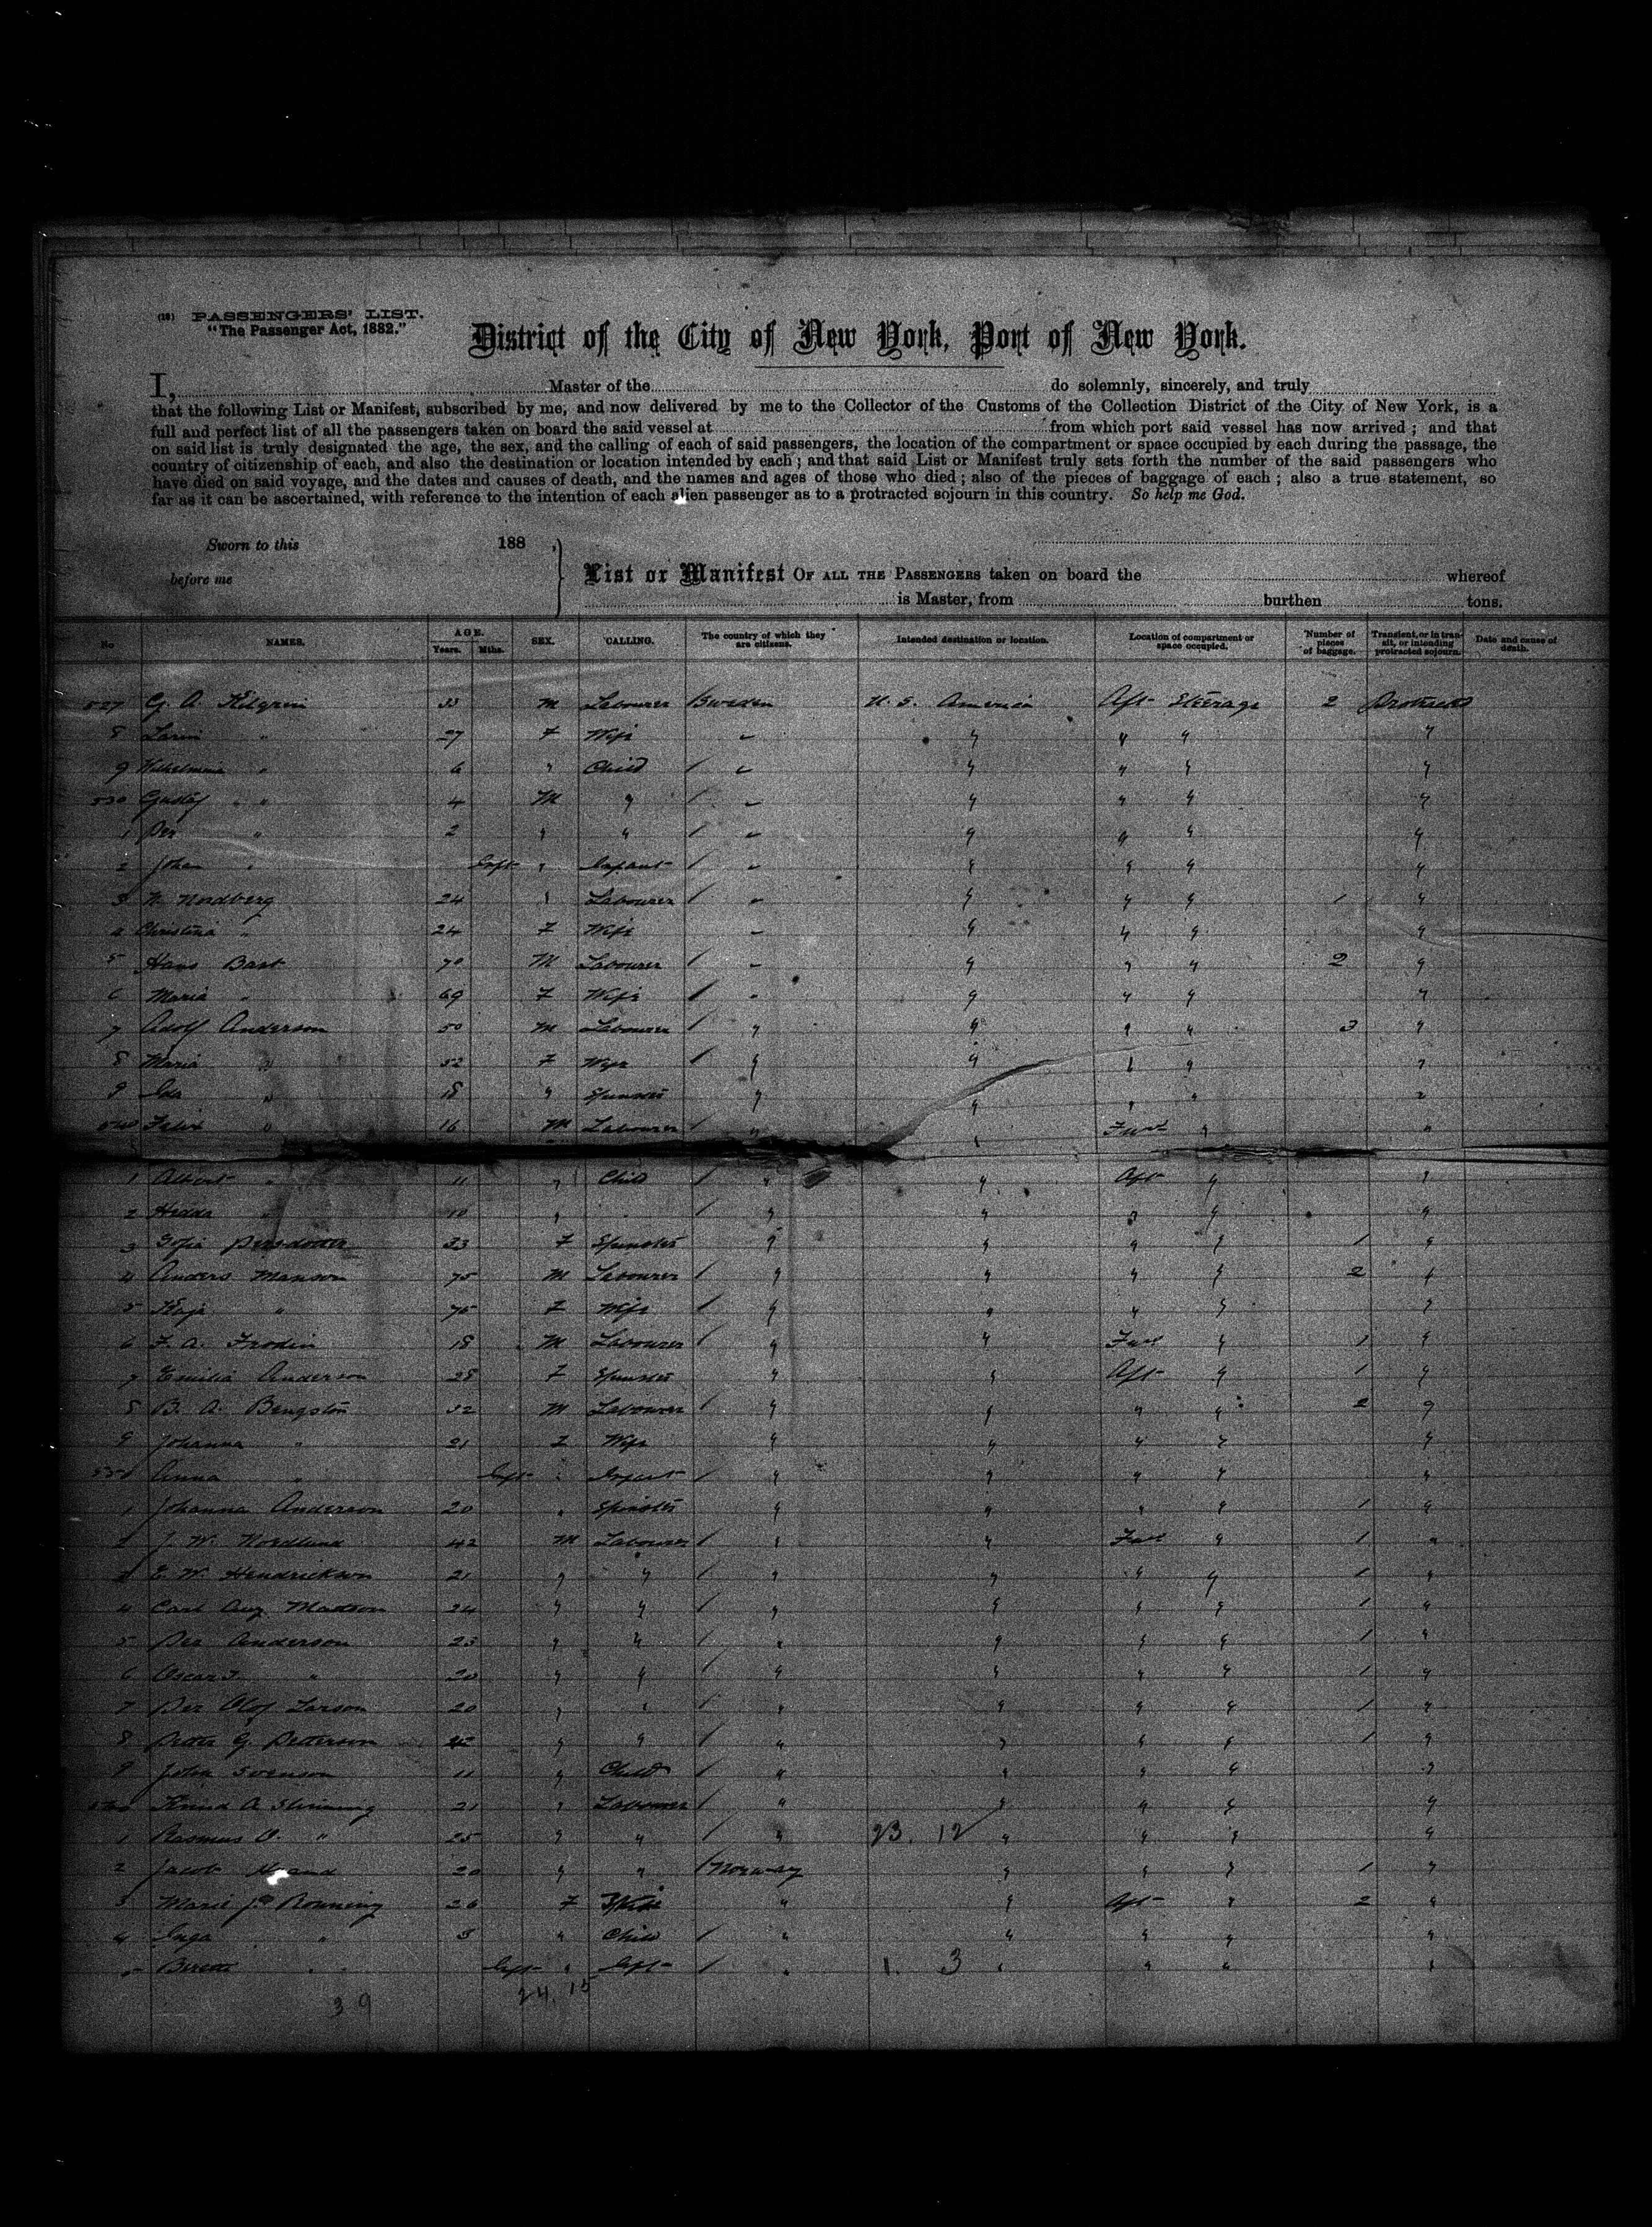 (18) PASSENGERS' LIST.
"The Passenger Act, 1882."
District of the City of New York, Port of New York.
I, Master of the do solemnly, sincerely, and truly
that the following List or Manifest, subscribed by me, and now delivered by me to the Collector of the Customs of the Collection District of the City of New York, is a
full and perfect list of all the passengers taken on board the said vessel at from which port said vessel has now arrived ; and that
on said list is truly designated the age, the sex, and the calling of each of said passengers, the location of the compartment or space occupied by each during the passage, the
country of citizenship of each, and also the destination or location intended by each ; and that said List or Manifest truly sets forth the number of the said passengers who
have died on said voyage, and the dates and causes of death, and the names and ages of those who died ; also of the pieces of baggage of each ; also a true statement, so
far as it can be ascertained, with reference to the intention of each alien passenger as to a protracted sojourn in this country. So help me God.
Sworn to this 188
before me
List or Manifest OF ALL THE PASSENGERS taken on board the whereof
is Master, from burthen tons.
No NAMES. AGE. Years. Mths. SEX. CALLING. The country of which they are citizens. Intended destination or location. Location of compartment or space occupied. Number of pieces of baggage. Transient, or in transit, or intending protracted sojourn. Date and cause of death.
527 G. A. 33 M Labourer Sweden U. S. America Aft Steerage 2
8 " 27 F Wife " " " " "
9 Wilhelmina " 6 " Child " " " " "
530 Gustaf " 4 M " " " " " "
1 Per " 2 " " " " " " "
2 Johan " Inft " Infant " " " " "
3 N. Nordberg 24 " Labourer " " " " 1 "
4 Christina " 24 F Wife " " " " "
5 Hans Bast 70 M Labourer " " " " 2 "
6 Maria " 69 F Wife " " " " "
7 Adolf Anderson 50 M Labourer " " " " 3 "
8 Maria " 52 F Wife " " " " "
9 Ida " 18 " Spinster " " " " "
540 Felix " 16 M Labourer " " Fwd " "
1 Albert " 11 " Child " " Aft " "
2 Hedda " 10 " " " " " " "
3 Sofia Persdotter 33 F Spinster " " " " 1 "
4 Anders Manson 75 M Labourer " " " " 2 "
5 " 75 F Wife " " " " "
6 F. A. Frodin 18 M Labourer " " Fwd " 1 "
7 Emilia Anderson 28 F Spinster " " Aft " 1 "
8 B. A. Bengston 32 M Labourer " " " " 2 "
9 Johanna " 21 F Wife " " " " "
550 Anna " Inft " Infant " " " " "
1 Johanna Anderson 20 " Spinster " " " " 1 "
2 J. W. Nordlund 42 M Labourer " " Fwd " 1 "
3 E. W. Hendrickson 21 " " " " " " 1 "
4 Carl Aug Madson 24 " " " " " " 1 "
5 Per Anderson 23 " " " " " " 1 "
6 Oscar " 20 " " " " " " 1 "
7 Per Olof Larson 20 " " " " " " 1 "
8 Petter G. Petterson " " " " " " 1 "
9 John Svenson 11 " Child " " " " "
560 A. 21 " Labourer " " " " "
1 Rasmus O. " 25 " " " 23. 12 " " " "
2 Jacob 20 " " Norway " " " 1 "
3 Marie Ronning 26 F Wife " " Aft " 2 "
4 Inga " 3 " Child " " " " "
5 " Inft " Inft " 1. 3 " " " "
39 24. 15